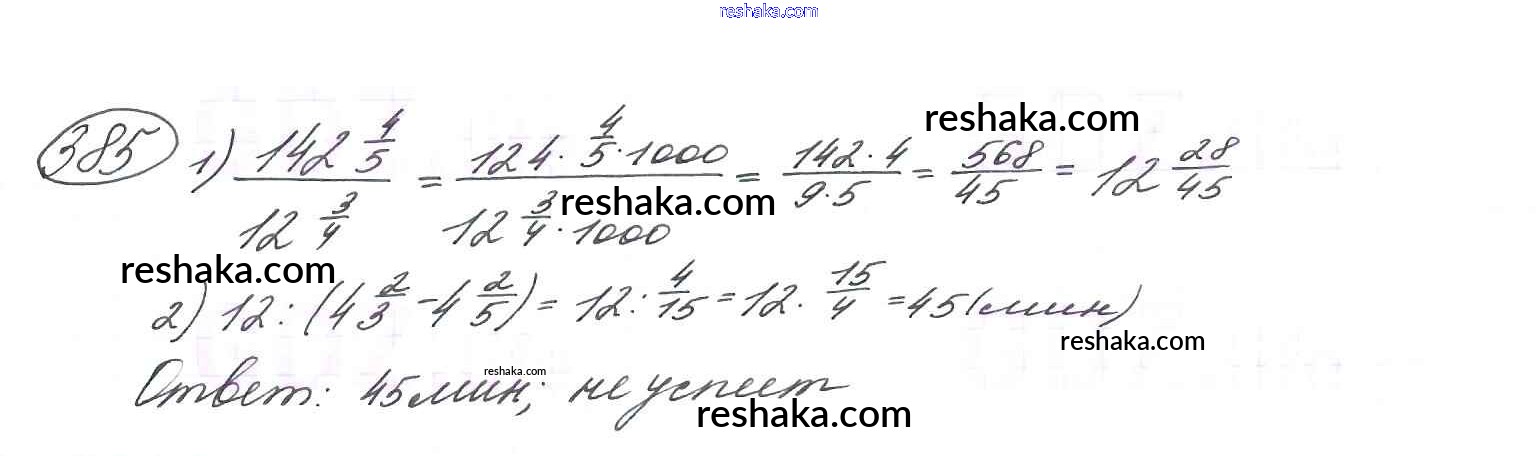 reshaka.com
reshaka.com
385 1) 142 4/5 / 12 3/4 = 124 · 4/5 · 1000 / 12 3/4 · 1000 = 142 · 4 / 9 · 5 = 568/45 = 12 28/45
reshaka.com
reshaka.com
2) 12 : (4 2/3 - 4 2/5) = 12 : 4/15 = 12 · 15/4 = 45 (мин)
reshaka.com
reshaka.com
Ответ: 45 мин; не успеет
reshaka.com